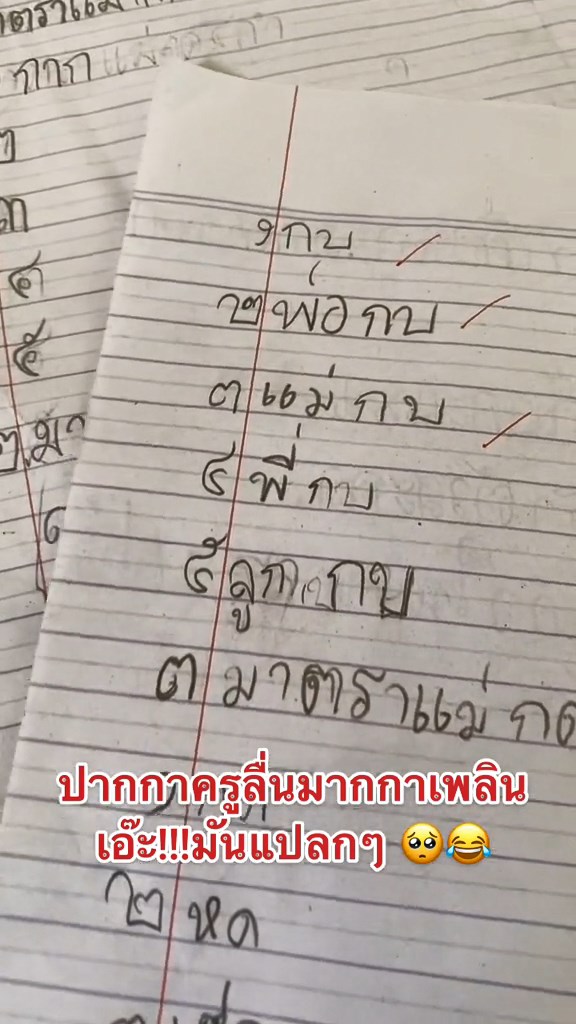 กาก
๑ กบ
๒ พ่อกบ
๓ แม่กบ
๔ พี่กบ
๕ ลูกกบ
๓ มาตราแม่ กด
ปากกาครูลื่นมากกาเพลิน
เอ๊ะ!!!มันแปลกๆ 🥺😂
๒ หด